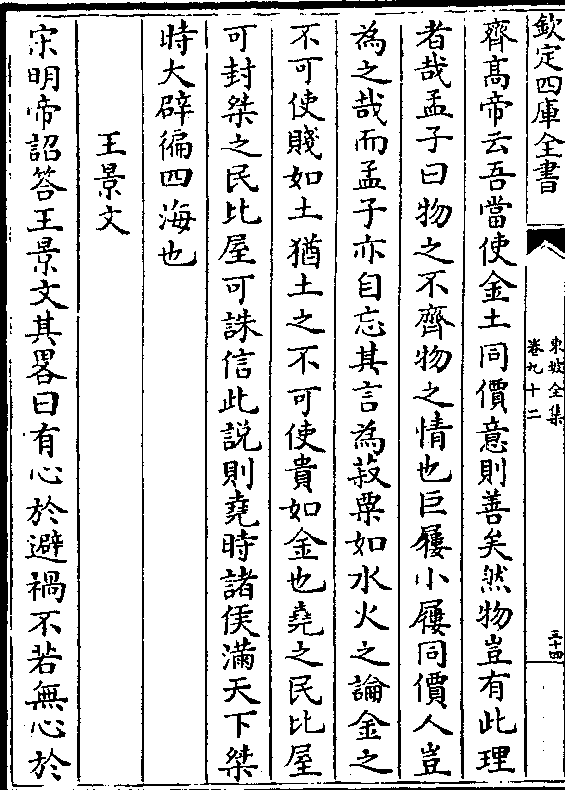 欽定四庫全書
東坡全集
卷九十二
三十四
齊髙帝云吾當使金土同價意則善矣然物豈有此理
者哉孟子曰物之不齊物之情也巨屨小屨同價人豈
為之哉而孟子亦自忘其言為菽粟如水火之論金之
不可使賤如土猶土之不可使貴如金也堯之民比屋
可封桀之民比屋可誅信此説則堯時諸侯滿天下桀
時大辟徧四海也
王景文
宋明帝詔答王景文其畧曰有心於避禍不若無心於